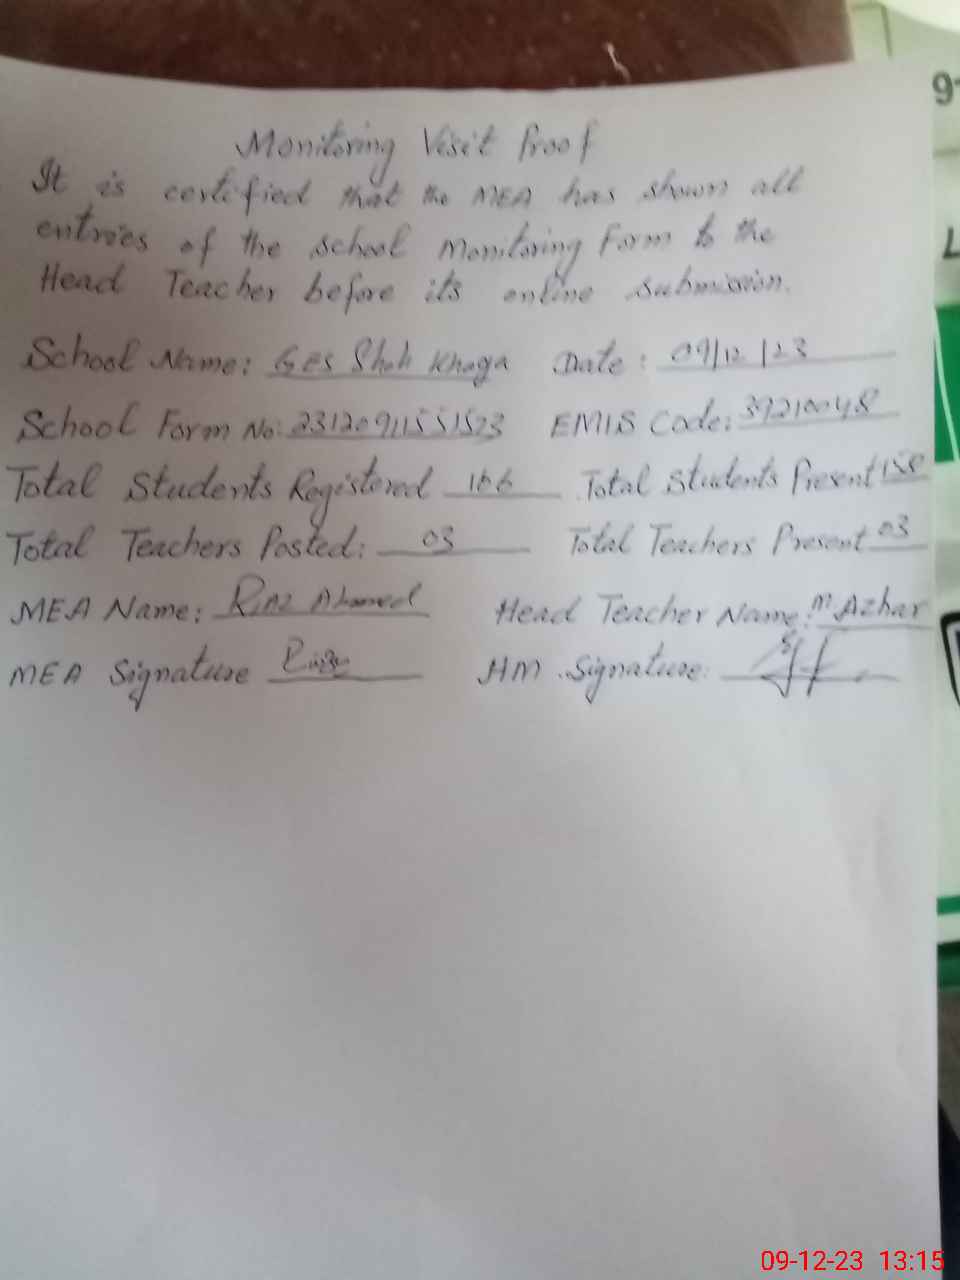 Monitoring Visit Proof
It is certified that the MEA has shown all
entries of the school Monitoring Form to the
Head Teacher before its online submission.
School Name: GES Shah Khaga Date: 09/12/23
School Form No: EMIS Code: 39210048
Total Students Registered 166 Total Students Present 150
Total Teachers Posted: 03 Total Teachers Present 03
MEA Name: Riaz Ahmed Head Teacher Name: M. Azhar
MEA Signature Riaz HM Signature:
09-12-23 13:15